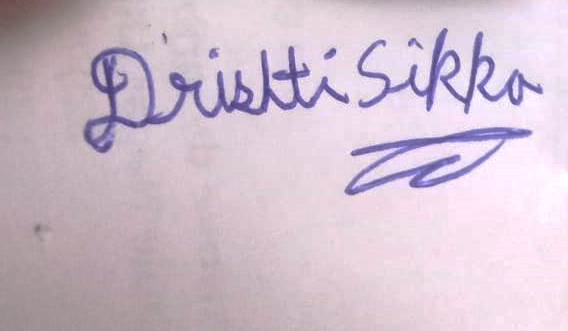 Drishti Sikka